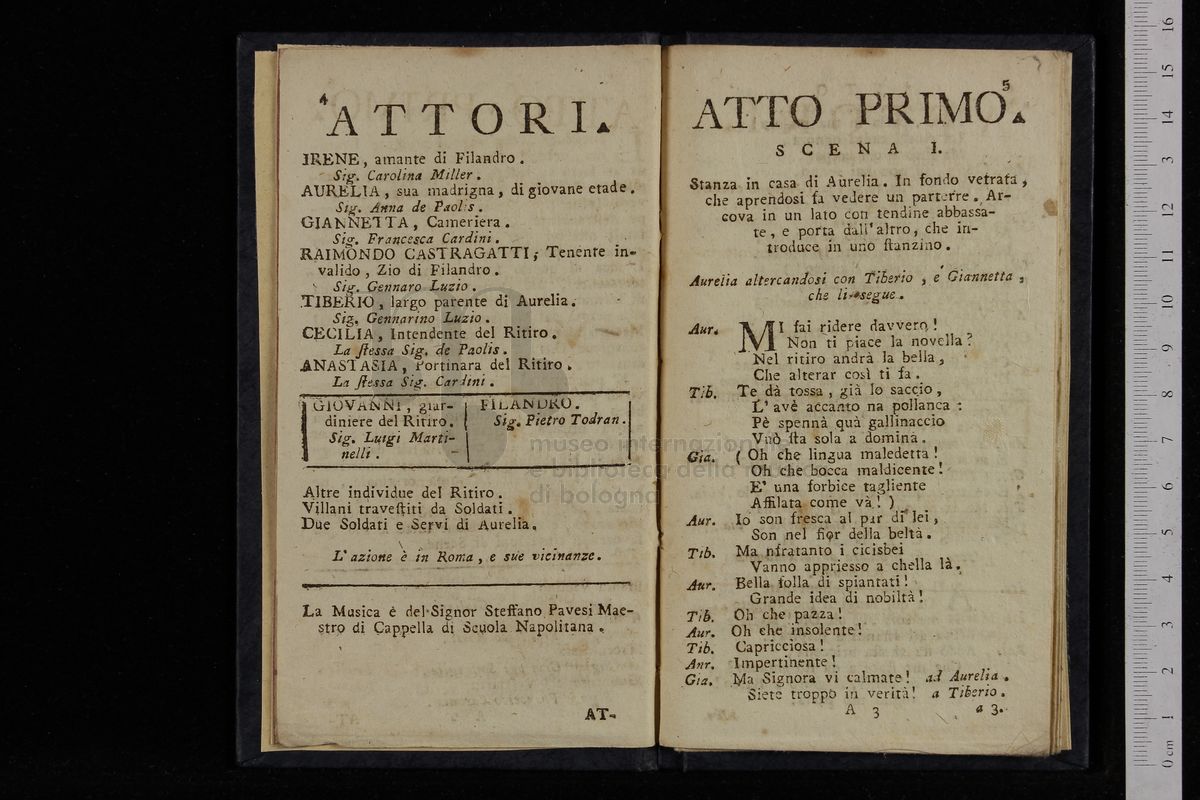 4
ATTORI.
IRENE, amante di Filandro.
Sig. Carolina Miller.
AURELIA, sua madrigna, di giovane etade.
Sig. Anna de Paolis.
GIANNETTA, Cameriera.
Sig. Francesca Cardini.
RAIMONDO CASTRAGATTI, Tenente in-
valido, Zio di Filandro.
Sig. Gennaro Luzio.
TIBERIO, largo parente di Aurelia.
Sig. Gennarino Luzio.
CECILIA, Intendente del Ritiro.
La stessa Sig. de Paolis.
ANASTASIA, Portinara del Ritiro.
La stessa Sig. Cardini.
GIOVANNI, giar-
diniere del Ritiro.
Sig. Luigi Marti-
nelli.
FILANDRO.
Sig. Pietro Todran.
Altre individue del Ritiro.
Villani travestiti da Soldati.
Due Soldati e Servi di Aurelia.
L'azione è in Roma, e sue vicinanze.
La Musica è del Signor Steffano Pavesi Mae-
stro di Cappella di Scuola Napolitana.
AT-
5
ATTO PRIMO.
SCENA I.
Stanza in casa di Aurelia. In fondo vetrata,
che aprendosi fa vedere un parterre. Ar-
cova in un lato con tendine abbassa-
te, e porta dall'altro, che in-
troduce in uno stanzino.
Aurelia altercandosi con Tiberio, e Giannetta,
che li segue.
Aur. MI fai ridere davvero!
Non ti piace la novella?
Nel ritiro andrà la bella,
Che alterar così ti fa.
Tib. Te dà tossa, già lo saccio,
L'avè accanto na pollanca:
Pè spennà quà gallinaccio
Vuò sta sola a domina.
Gia. (Oh che lingua maledetta!
Oh che bocca maldicente!
E' una forbice tagliente
Affilata come và!)
Aur. Io son fresca al par di lei,
Son nel fior della beltà.
Tib. Ma nfratanto i cicisbei
Vanno appriesso a chella là.
Aur. Bella folla di spiantati!
Grande idea di nobiltà!
Tib. Oh che pazza!
Aur. Oh che insolente!
Tib. Capricciosa!
Anr. Impertinente!
Gia. Ma Signora vi calmate! ad Aurelia.
Siete troppo in verità! a Tiberio.
A 3 a 3.
museo internazionale
e biblioteca della musica
di bologna
0 cm 1 2 3 4 5 6 7 8 9 10 11 12 13 14 15 16